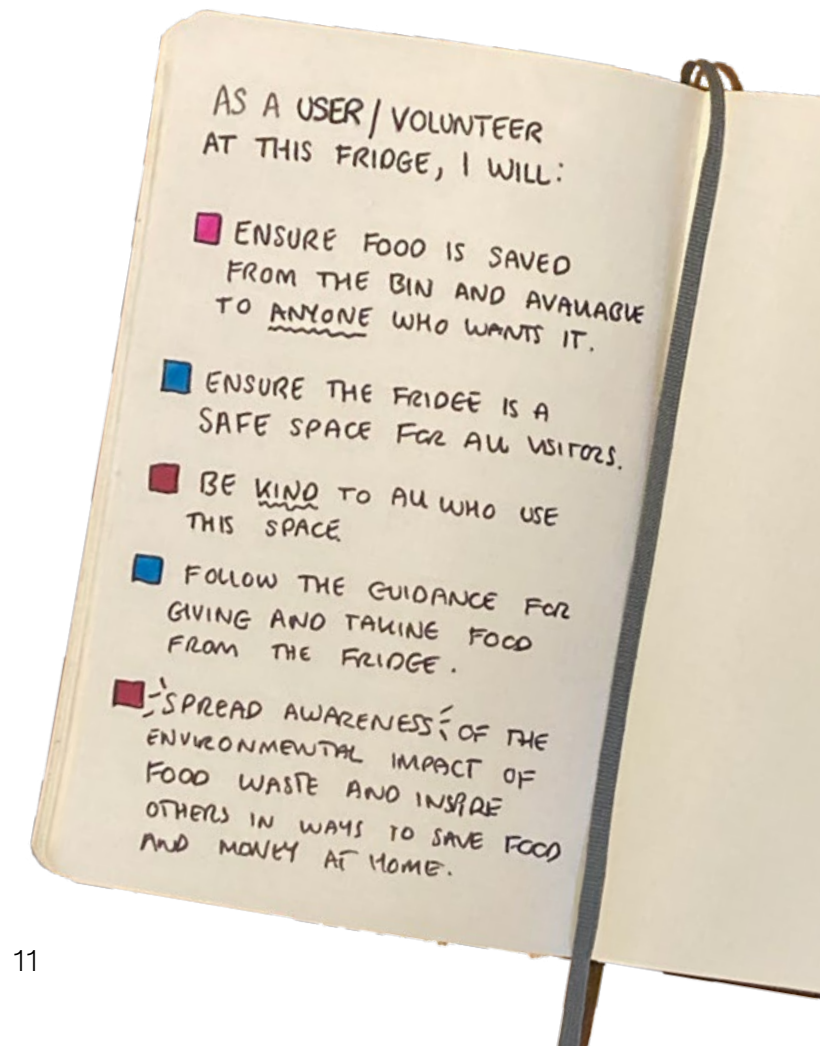 AS A USER / VOLUNTEER
AT THIS FRIDGE, I WILL:
ENSURE FOOD IS SAVED
FROM THE BIN AND AVAILABLE
TO ANYONE WHO WANTS IT.
ENSURE THE FRIDGE IS A
SAFE SPACE FOR ALL VISITORS.
BE KIND TO ALL WHO USE
THIS SPACE
FOLLOW THE GUIDANCE FOR
GIVING AND TAKING FOOD
FROM THE FRIDGE.
SPREAD AWARENESS OF THE
ENVIRONMENTAL IMPACT OF
FOOD WASTE AND INSPIRE
OTHERS IN WAYS TO SAVE FOOD
AND MONEY AT HOME.
11